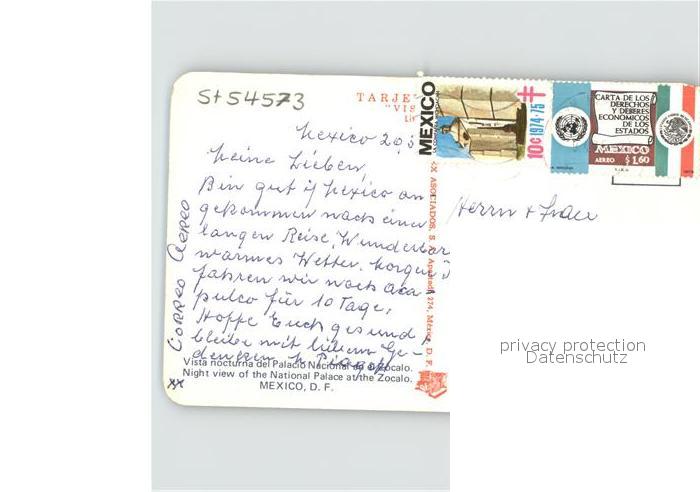 St 54573
TARJE
"VIS
Mexico 20.
Meine Lieben,
Bin gut in Mexico an
gekommen nach einer
langen Reise, Wunderbar
warmes Wetter. Morgen
fahren wir nach Aca
pulco für 10 Tage,
Hoffe Euch gesund,
bleibe mit lieben Ge-
denken
CORREO AEREO
Vista nocturna del Palacio Nacional Zocalo.
Night view of the National Palace at the Zocalo.
MEXICO, D. F.
XX
EX ASOCIADOS, S. A. Apartado 274, México, D. F.
MEXICO
10¢ 1974-75
CARTA DE LOS
DERECHOS
Y DEBERES
ECONOMICOS
DE LOS
ESTADOS
MEXICO
AEREO $1.60
Herrn & Frau
privacy protection
Datenschutz